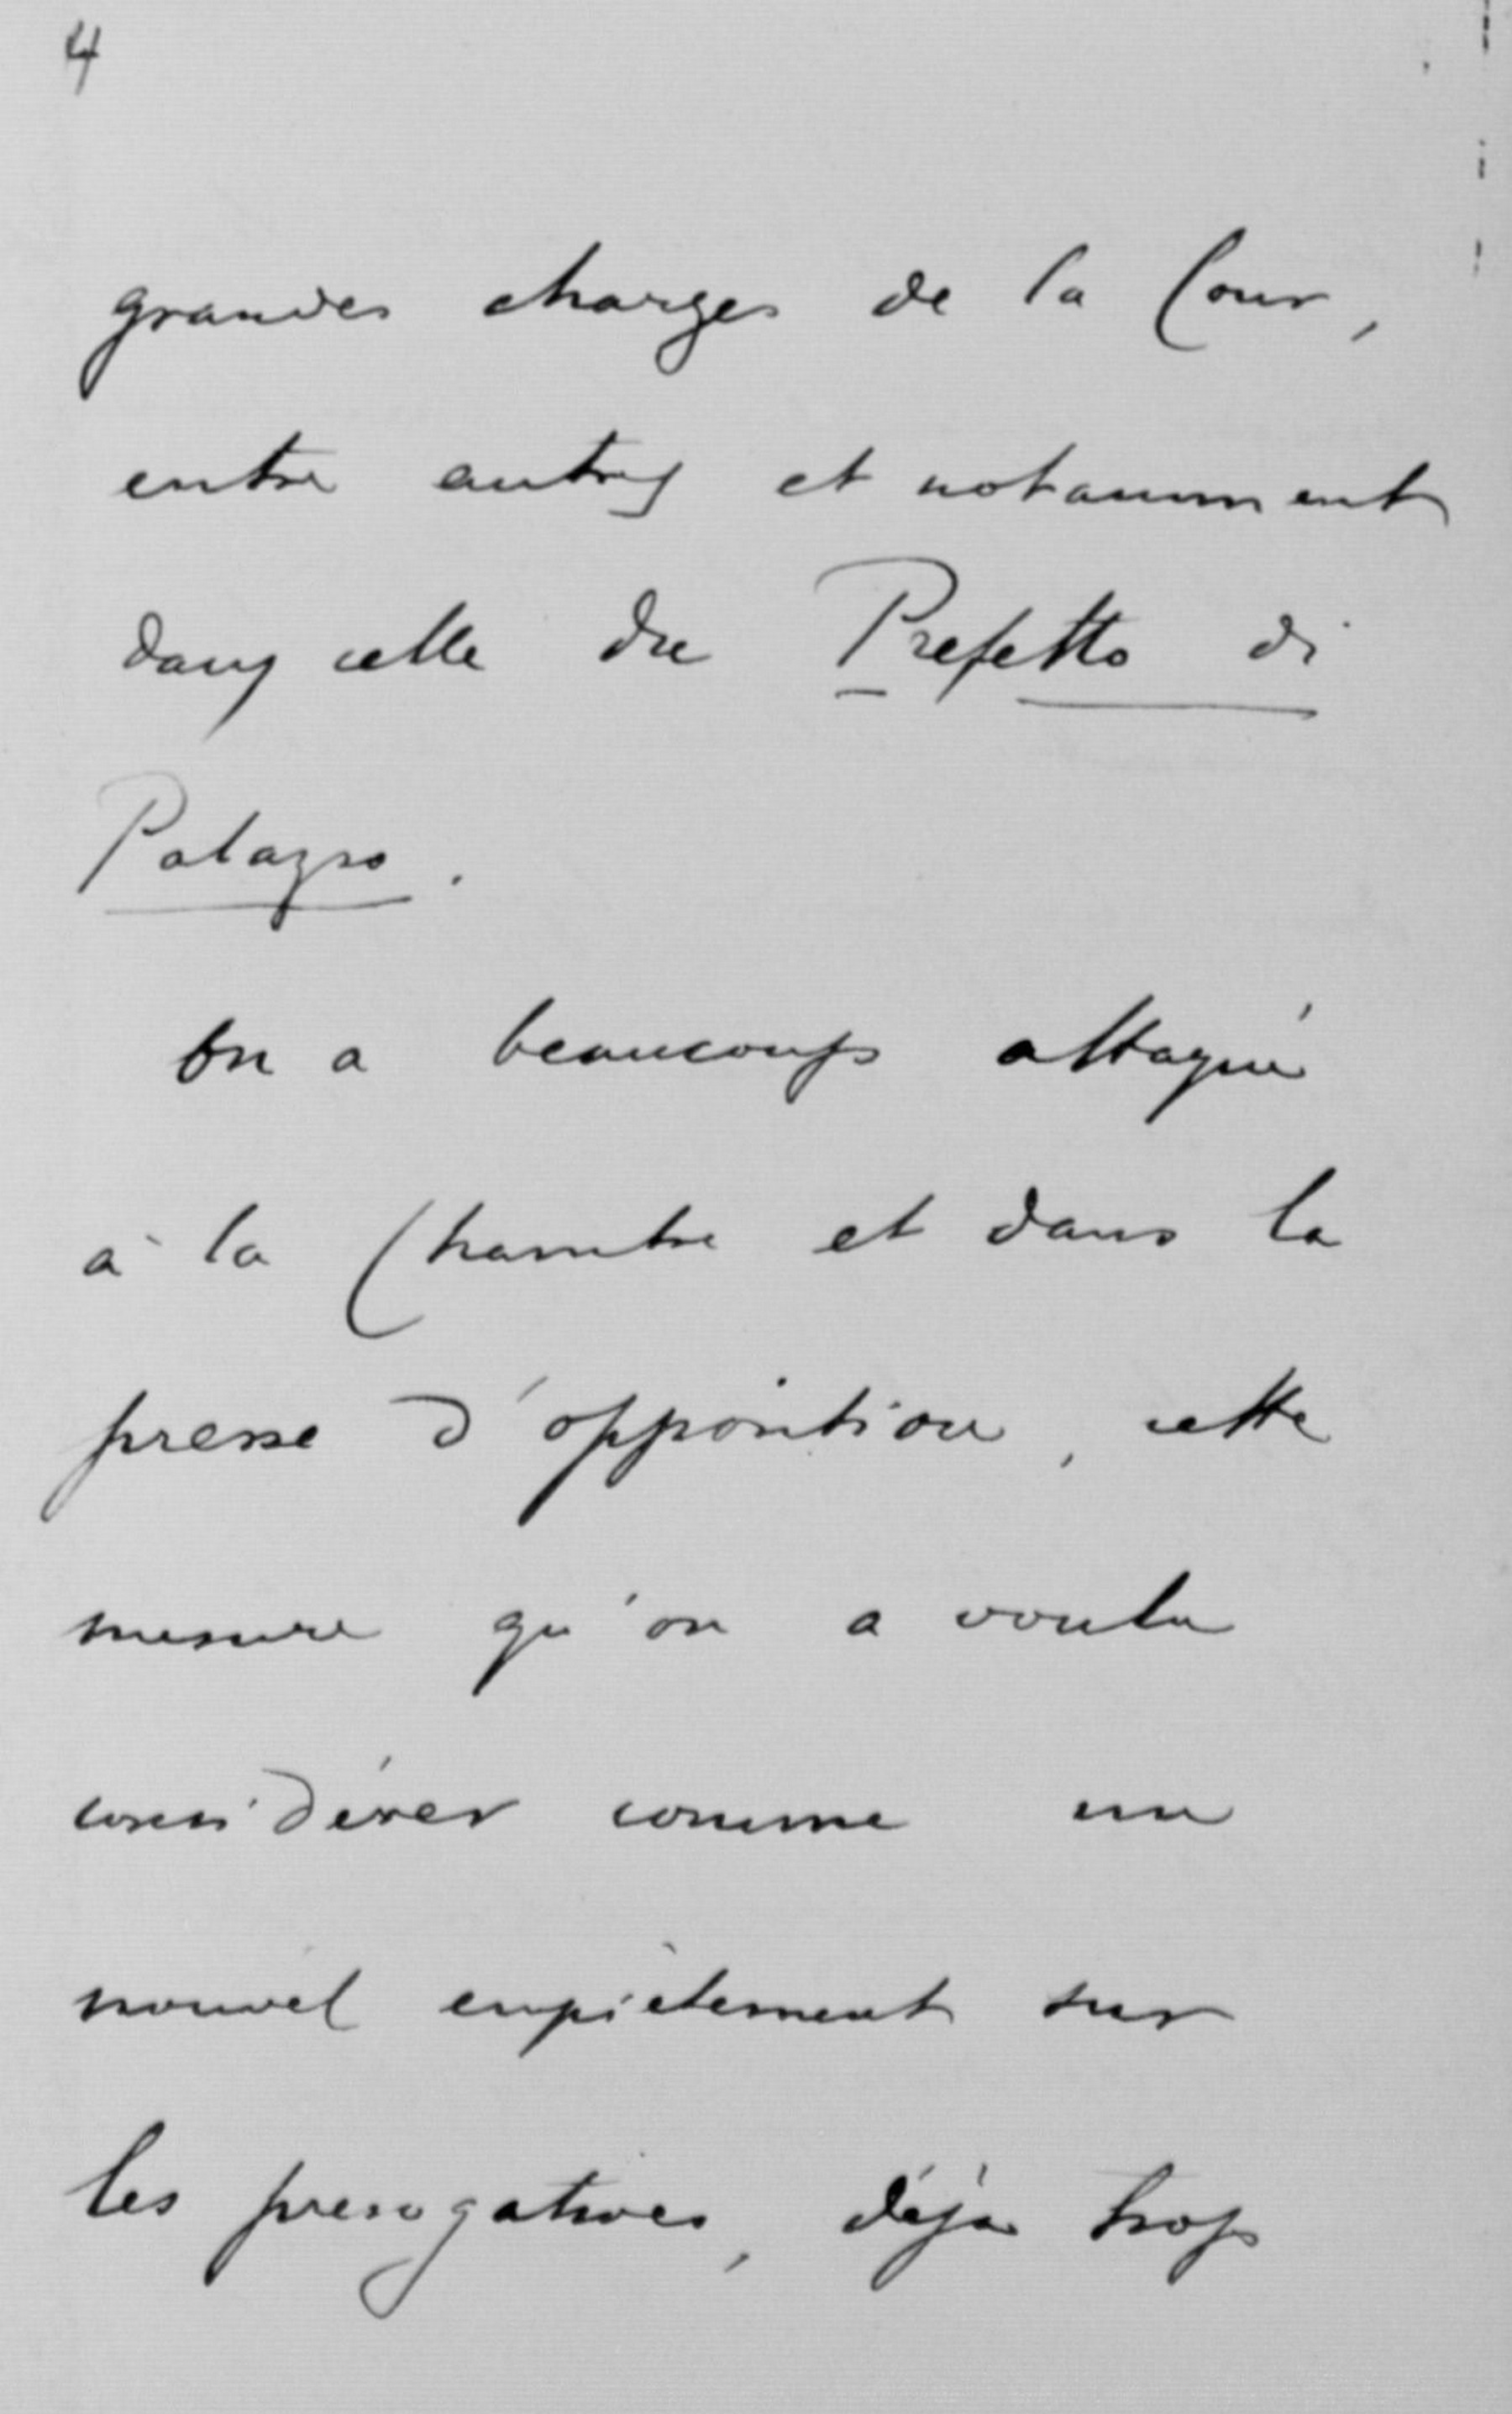 4
grandes charges de la Cour,
entre autres et notamment
dans celle du Prefetto di
Palazzo.
On a beaucoup attaqué
à la Chambre et dans la
presse d'opposition, cette
mesure qu'on a voulu
considérer comme un
nouvel empiètement sur
les prerogatives, déjà trop